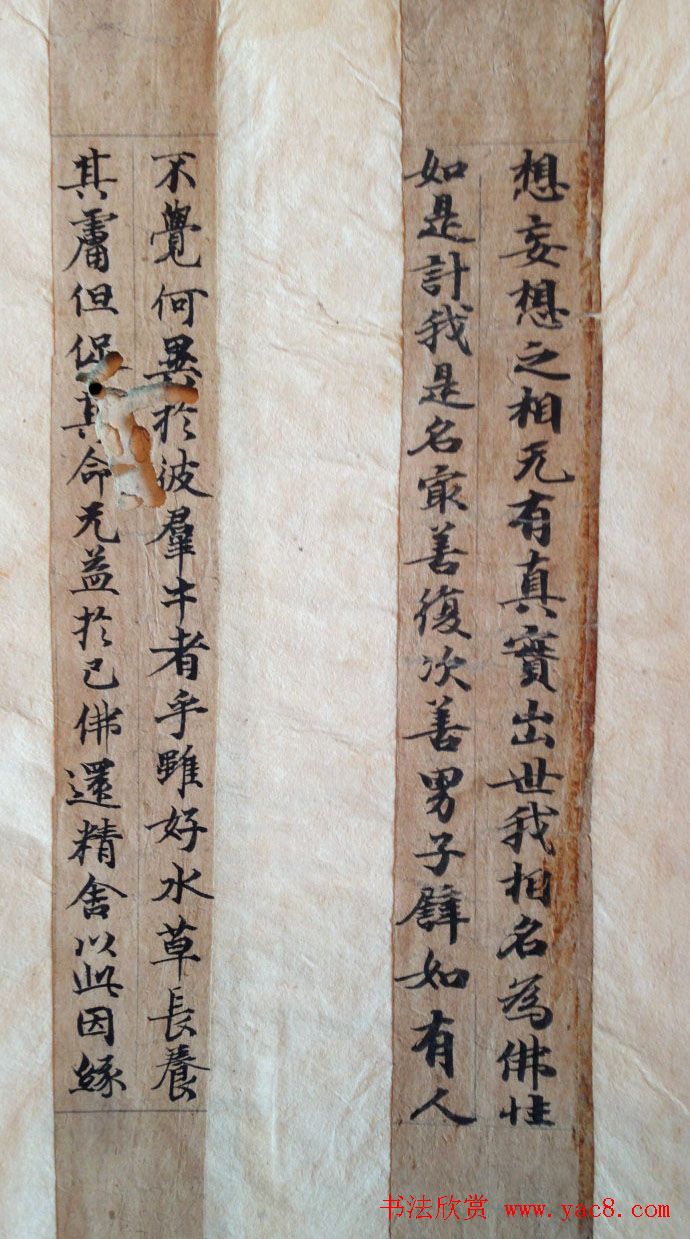 想妄想之相无有真實出世我相名為佛性
如是計我是名寂善復次善男子譬如有人
不覺何異於彼羣牛者乎雖好水草長養
其膚但促其命无益於己佛還精舍以此因緣
书法欣赏 www.yac8.com